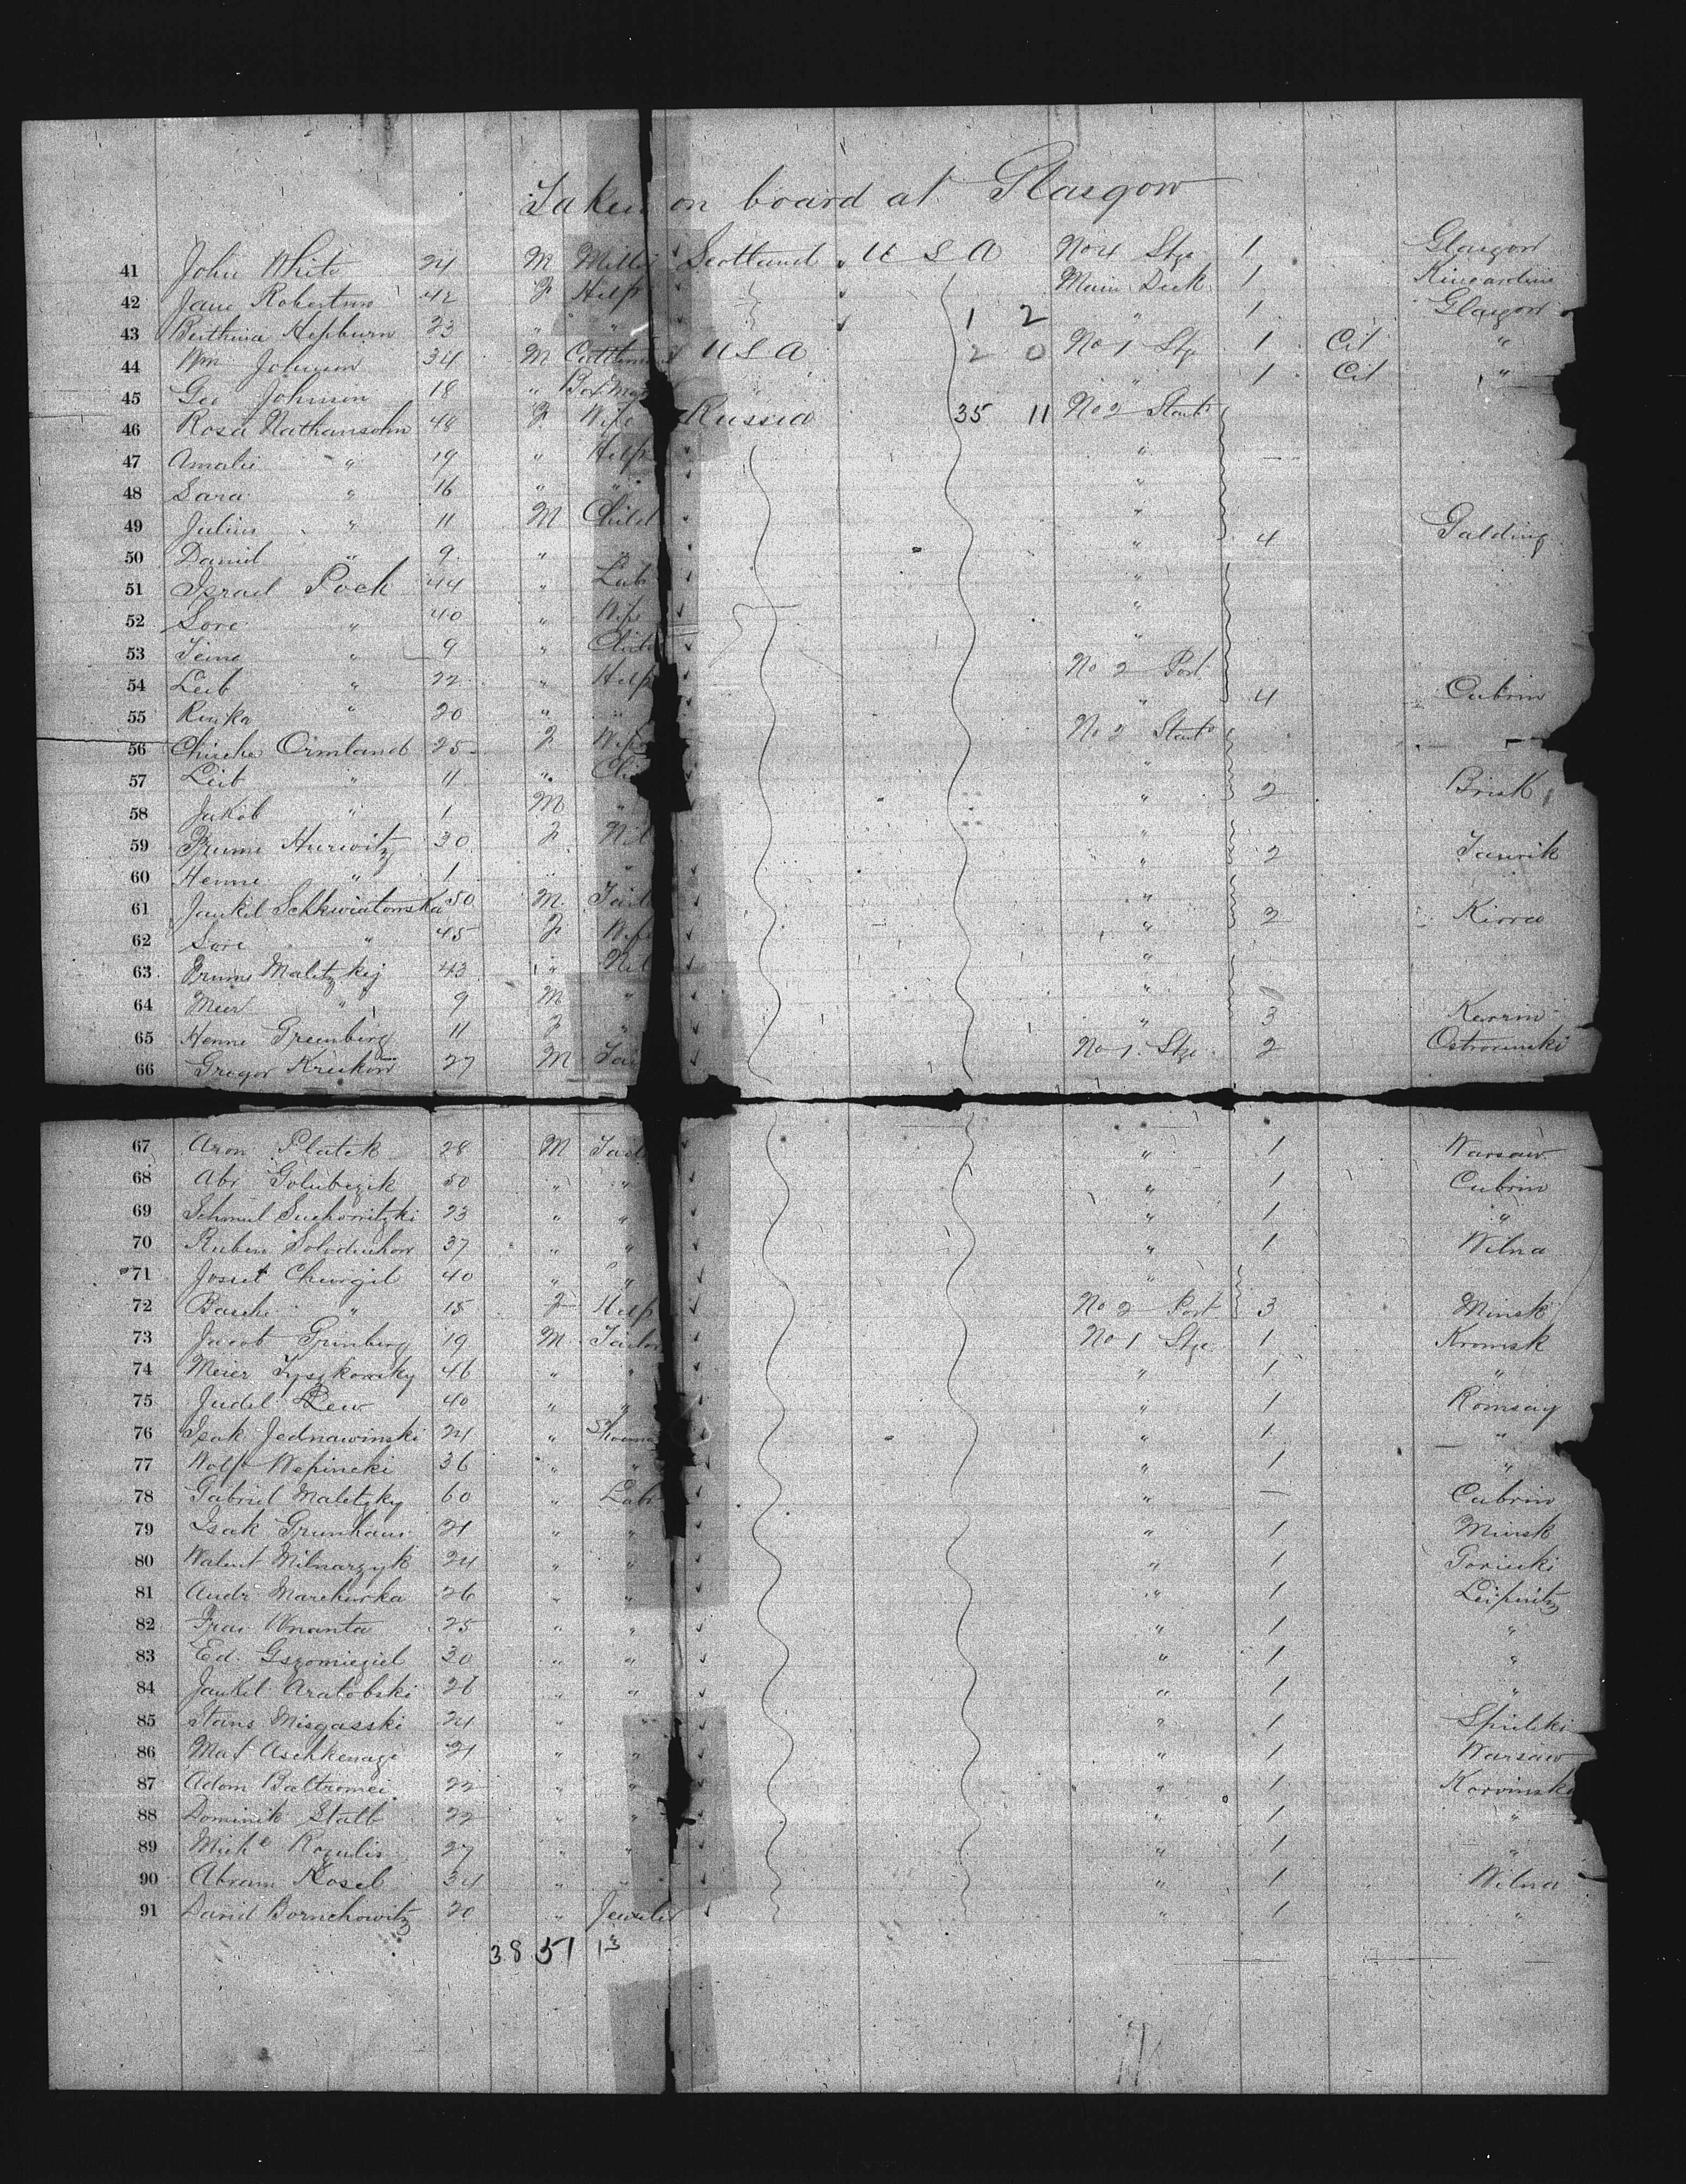 Taken on board at Glasgow
41 John White 24 M Mille Scotland U S A No 4 Stge 1 Glasgow
42 Jane Robertson 42 F Help Main Deck 1 Kincardine
43 Hepburn 23 " " 1 2 " 1 Glasgow
44 Wm Johnson 34 M U S A 2 0 No 1 Stge 1 Cit "
45 Geo Johnson 18 " " 1 Cit "
46 Rosa Nathansohn 48 F Wife Russia 35 11 No 2 Starb
47 Amalie " 19 " Help "
48 Sara " 16 " " "
49 Julius " 11 M Child "
50 Daniel " 9 " " " 4 Galding
51 Israel Pock 44 " Lab "
52 Sore " 40 " Wife "
53 " 9 " Child "
54 Leib " 22 " Help No 2 Port
55 " 20 " " " 4 Cubrin
56 Ormland 25 F Wife No 2 Starb
57 Leib " 11 " Chi "
58 Jakob " 1 M " " 2 Brisk
59 Frume Hurwitz 30 F Nil "
60 Henne " 1 " " " 2
61 Jankel Schkwiatonska 50 M Tail "
62 Sore " 45 F Wife " 2
63 Frume Maletzkij 43 " Nil "
64 Meer " 9 M " "
65 Henne Greenberg 11 F " " 3
66 Gregor 27 M Tai No 1 Stge 2
67 Aron Platek 28 M Tail " 1 Warsaw
68 Abr Golubezik 50 " " " 1 Cubrin
69 Schmul Suchowitzki 23 " " " 1 "
70 Ruben Soloduchow 37 " " " 1 Wilna
71 Chwigil 40 " " "
72 Basche " 15 F Help No 2 Port 3 Minsk
73 Jacob Grinberg 19 M Tailor No 1 Stge 1 Kromsk
74 Meier Tyszkowsky 46 " " " 1 "
75 Judel Lew 40 " " " 1
76 Isak Jednawinski 24 " Shoema " 1 "
77 Wolf Wepineki 36 " " " 1 "
78 Gabriel Maletzky 60 " Lab " — Cubrin
79 Isak Grunhaus 21 " " " 1 Minsk
80 Walent Milnarzyk 24 " " " 1
81 Andr 26 " " " 1
82 25 " " " 1 "
83 Ed. Gszomiegiel 30 " " " 1 "
84 Jankel Aratobski 26 " " " 1 "
85 Stans Misgasski 24 " " " 1
86 Max Aschkenage 21 " " " 1 Warsaw
87 Adom Baltromei 22 " " " 1 Korvinski
88 Dominik Stalb 22 " " " 1 "
89 Rozulis 27 " " " 1 "
90 Abram Kosel 34 " " " 1 Wilna
91 David Bornchowitz 20 " Jeweler " 1 "
38 51 13